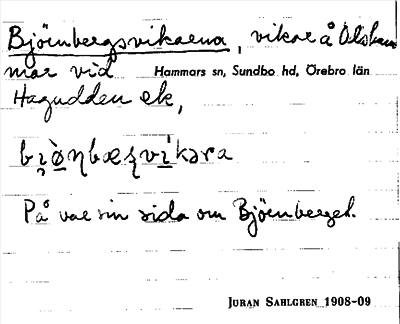 Björnbergsvikarna, vikar å Alsham
mar vid Hammars sn, Sundbo hd, Örebro län
Hagudden ek,
På var sin sida om Björnberget.
JURAN SAHLGREN 1908-09